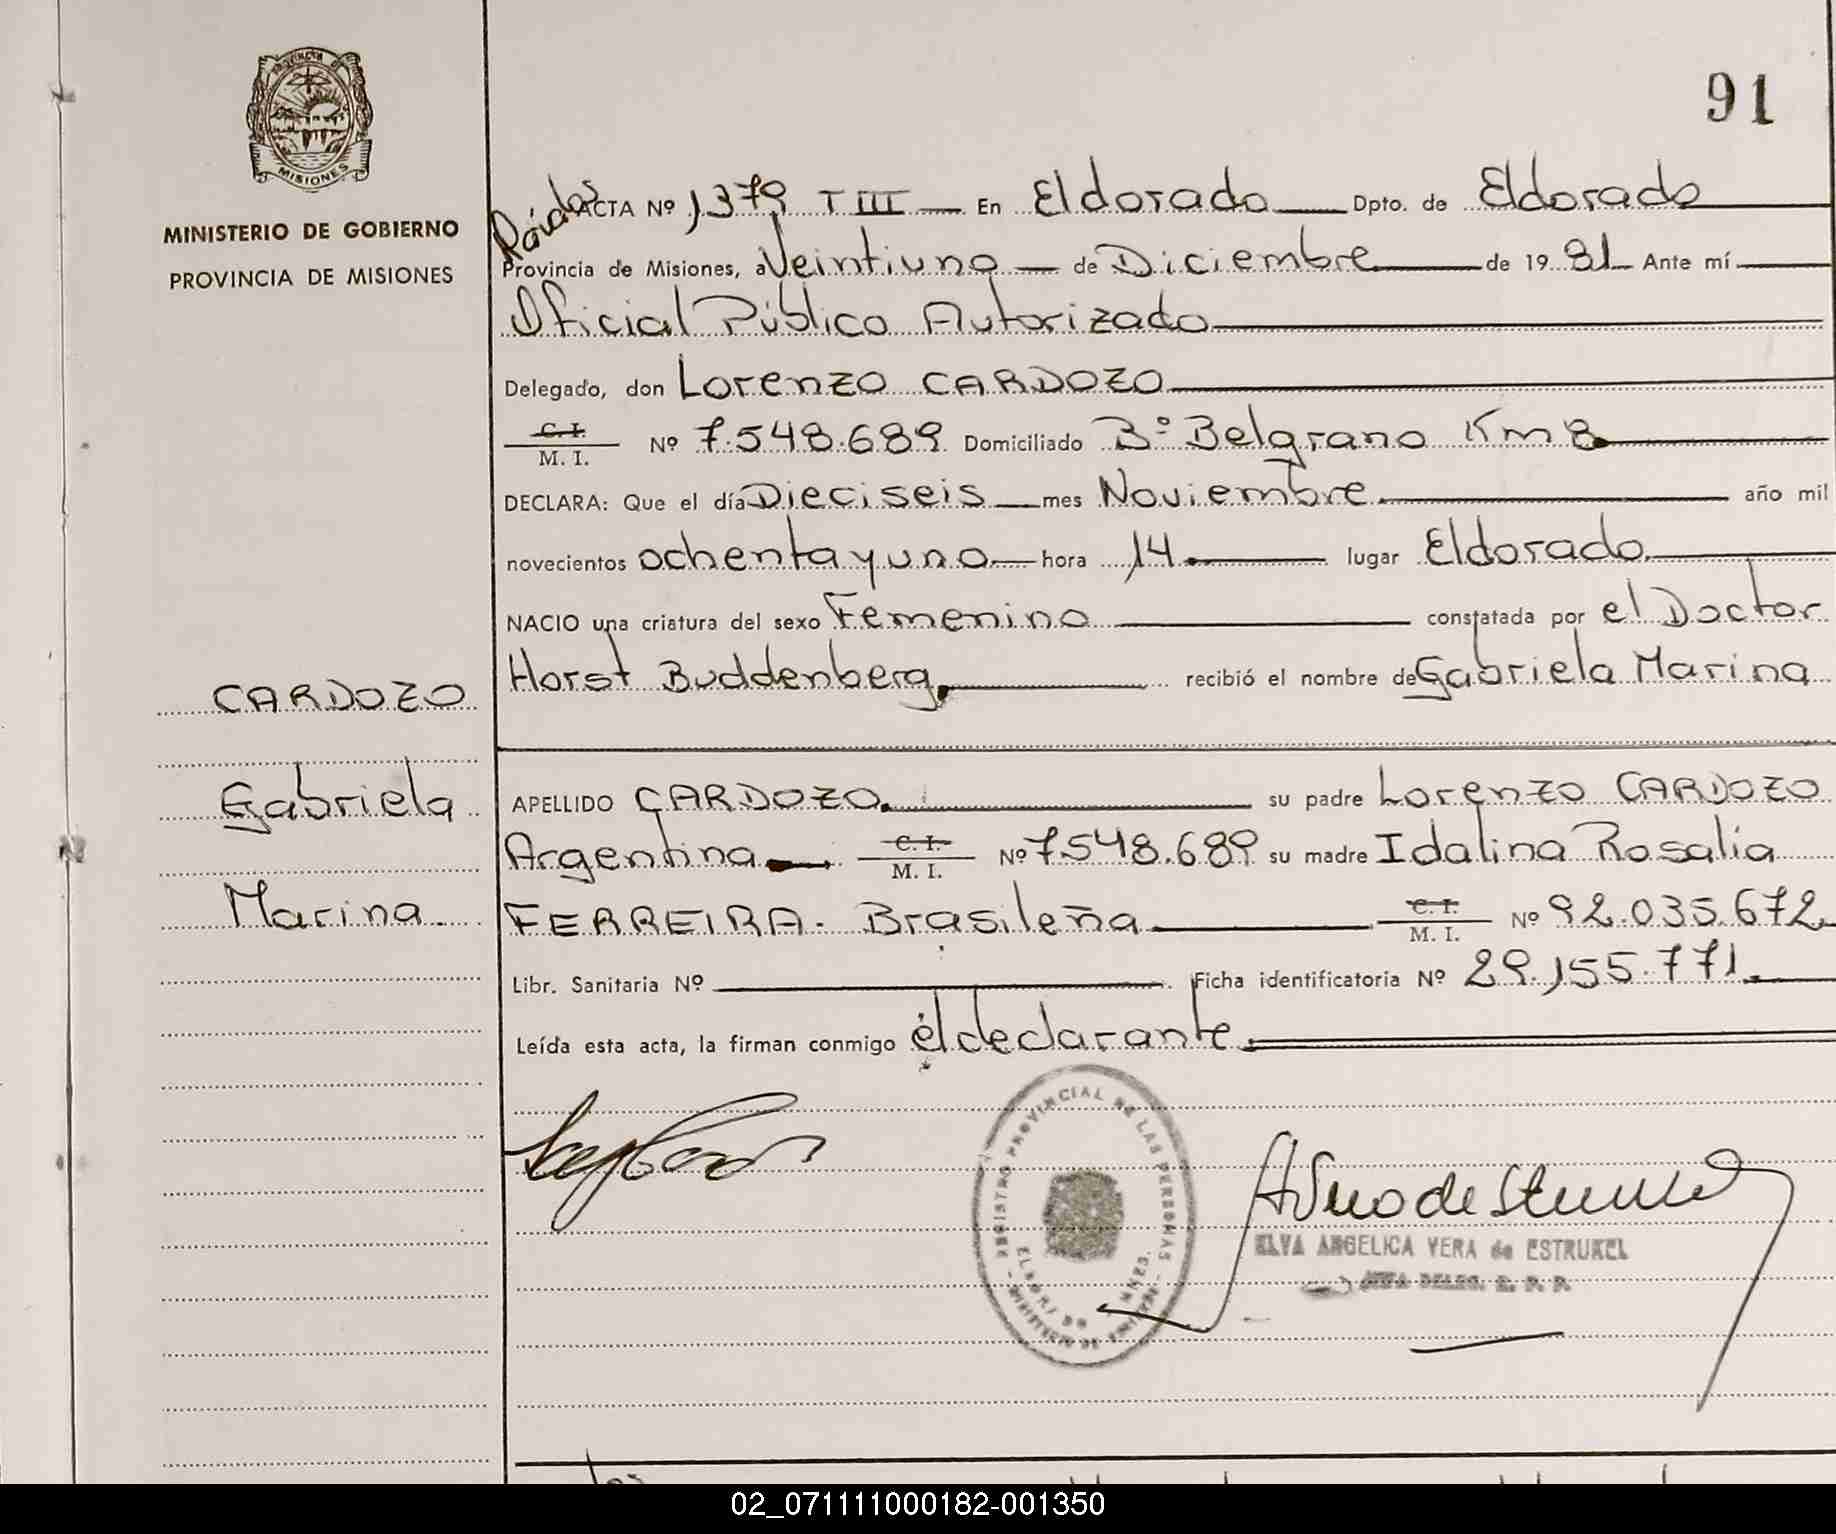 91
PROVINCIA DE
MISIONES
MINISTERIO DE GOBIERNO
PROVINCIA DE MISIONES
ACTA Nº 1379 T III — En Eldorado — Dpto. de Eldorado
Provincia de Misiones, a Veintiuno — de Diciembre — de 19 81 — Ante mí —
Oficial Público Autorizado
Delegado, don Lorenzo CARDOZO
C. I.
M. I. Nº 7.548.689 Domiciliado Bº Belgrano Km 8
DECLARA: Que el día Dieciseis — mes Noviembre — año mil
novecientos ochenta y uno — hora 14 — lugar Eldorado
NACIO una criatura del sexo Femenino — constatada por el Doctor
Horst Buddenberg, — recibió el nombre de Gabriela Marina
CARDOZO
Gabriela
Marina
APELLIDO CARDOZO. — su padre Lorenzo CARDOZO
Argentina — C. I.
M. I. Nº 7.548.689 su madre Idalina Rosalía
FERREIRA. Brasileña — C. I.
M. I. Nº 92.035.672
Libr. Sanitaria Nº — Ficha identificatoria Nº 29.155.771.
Leída esta acta, la firman conmigo el declarante
REGISTRO PROVINCIAL DE LAS PERSONAS
ELVA ANGELICA VERA de ESTRUKEL
02_071111000182-001350